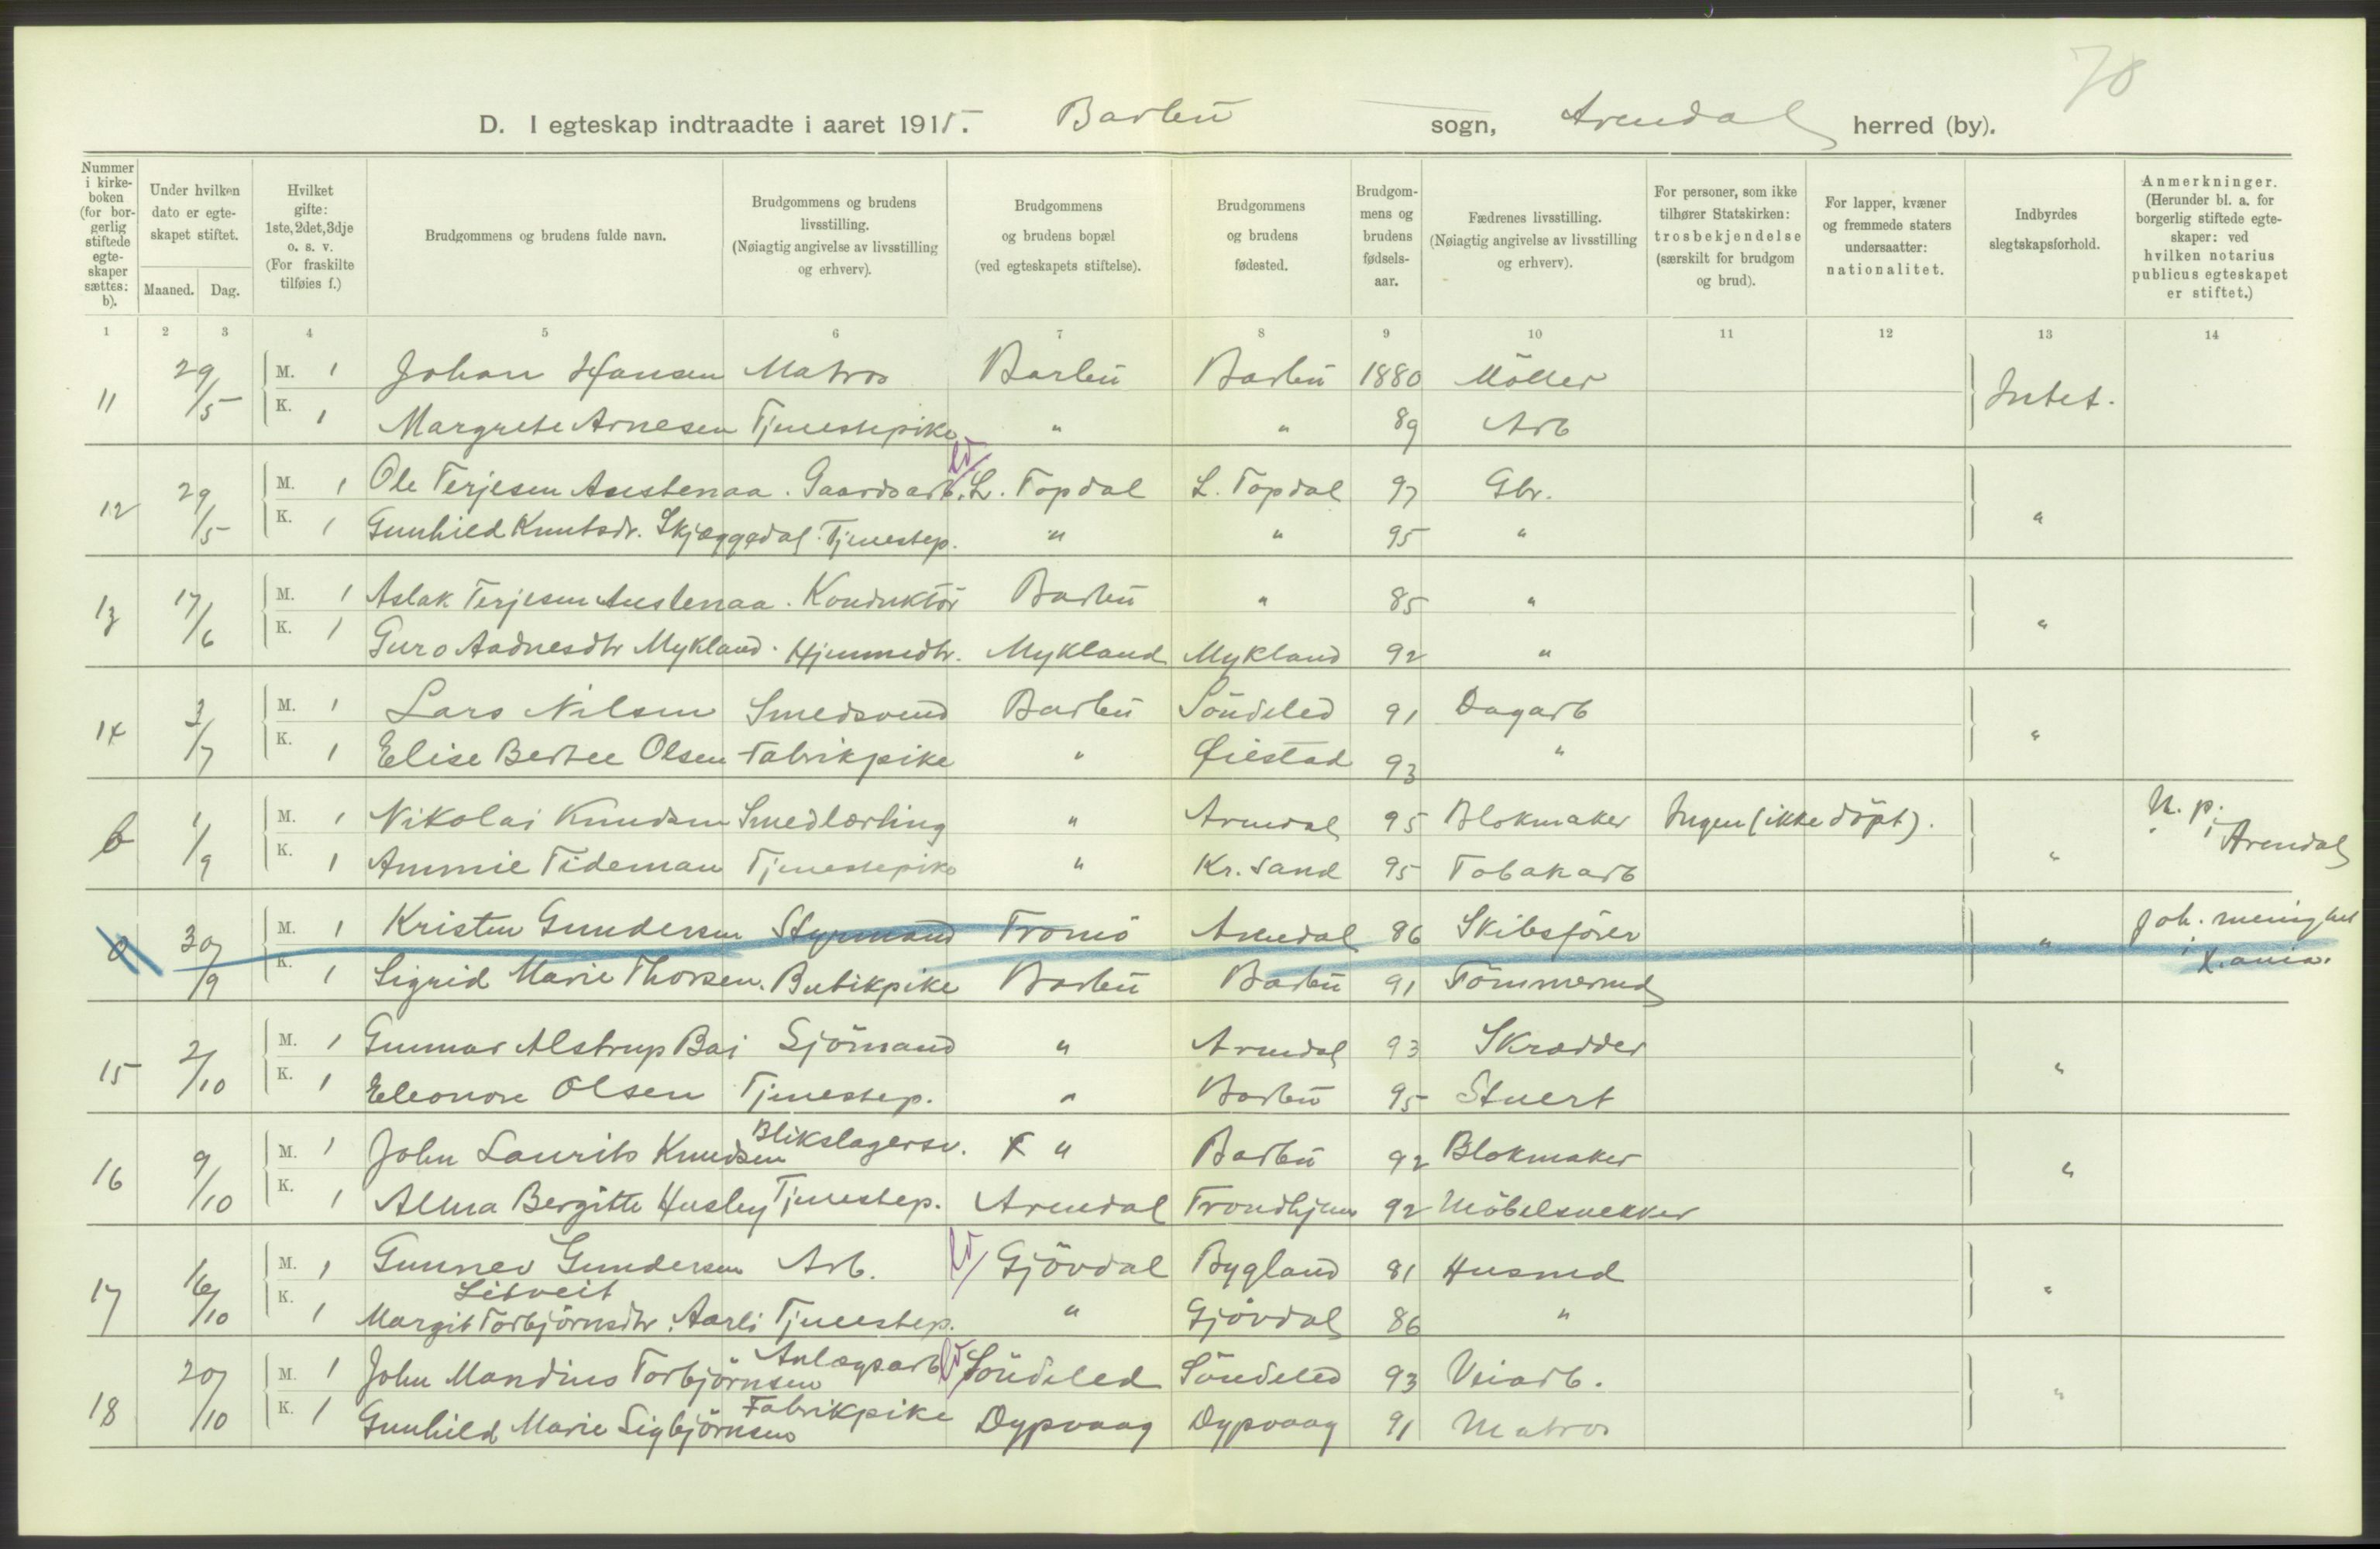 70
D. I egteskap indtraadte i aaret 1915. Barbu sogn, Arendal herred (by).
Nummer i kirke-boken (for bor-gerlig stiftede egte-skaper sættes: b).
Under hvilken dato er egte-skapet stiftet.
Maaned. Dag.
Hvilket gifte: 1ste, 2det, 3dje o. s. v. (For fraskilte tilføies f.)
Brudgommens og brudens fulde navn.
Brudgommens og brudens livsstilling. (Nøiagtig angivelse av livsstilling og erhverv).
Brudgommens og brudens bopæl (ved egteskapets stiftelse).
Brudgommens og brudens fødested.
Brudgom-mens og brudens fødsels-aar.
Fædrenes livsstilling. (Nøiagtig angivelse av livsstilling og erhverv).
For personer, som ikke tilhører Statskirken: trosbekjendelse (særskilt for brudgom og brud).
For lapper, kvæner og fremmede staters undersaatter: nationalitet.
Indbyrdes slegtskapsforhold.
Anmerkninger. (Herunder bl. a. for borgerlig stiftede egte-skaper: ved hvilken notarius publicus egteskapet er stiftet.)
1 2 3 4 5 6 7 8 9 10 11 12 13 14
11 29/5 M. 1 Johan Hansen Matros Barbu Barbu 1880 Möller Intet.
K. 1 Margrete Arnesen Tjenestepike " " 89 Arb
12 29/5 M. 1 Ole Terjesen Austenaa. Gaardsarb. L. Topdal L. Topdal 97 Gbr. "
K. 1 Gunhild Knutsdr. Skjæggedal. Tjenestep. " " 95 "
13 17/6 M. 1 Aslak Terjesen Austenaa. Konduktör Barbu " 85 " "
K. 1 Guro Aadnesdtr Mykland. Hjemmedtr. Mykland Mykland 92 "
14 3/7 M. 1 Lars Nilsen Smedsvend Barbu Söndeled 91 Dagarb "
K. 1 Elise Bertee Olsen Fabrikpike " Øiestad 93 "
b 1/9 M. 1 Nikolai Knudsen Smedlærling " Arendal 95 Blokmaker Ingen (ikke döpt). " N. p. i Arendal
K. 1 Ammie Tideman Tjenestepike " Kr.sand 95 Tobakarb
0 30/9 M. 1 Kristen Gundersen Styrmand Tromö Arendal 86 Skibsförer " Joh. menighet i X.ania.
K. 1 Sigrid Marie Thorsen. Butikpike Barbu Barbu 91 Tömmermd
15 2/10 M. 1 Gunnar Alstrup Bai Sjömand " Arendal 93 Skrædder "
K. 1 Eleonore Olsen Tjenestep. " Barbu 95 Stuert
16 9/10 M. 1 John Laurits Knudsen Blikslagersv. " Barbu 92 Blokmaker "
K. 1 Alma Bergitte Husby Tjenestep. Arendal Trondhjem 92 Möbelsnekker
17 16/10 M. 1 Gunner Gundersen Arb. Gjövdal Bygland 81 Husmd "
Litveit
K. 1 Margit Torbjörnsdtr. Aarli Tjenestep. " Gjövdal 86 "
18 20/10 M. 1 John Mandius Torbjörnsen Anlægsarb Söndeled Söndeled 93 Veiarb. "
K. 1 Gunhild Marie Sigbjörnsen Fabrikpike Dypvaag Dypvaag 91 Matros